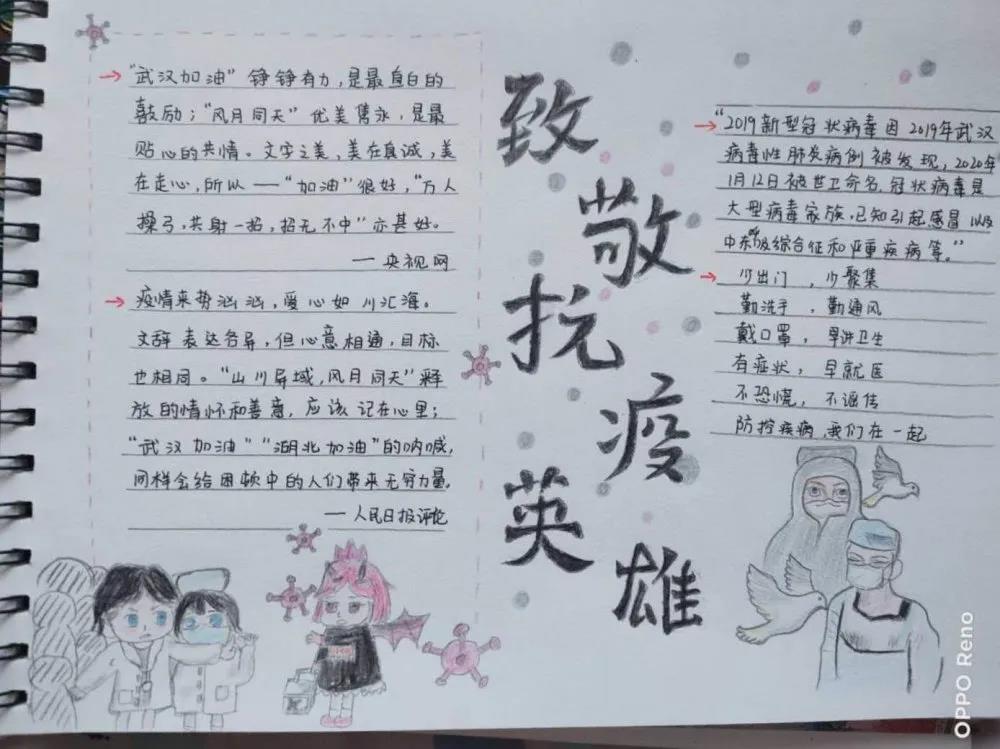 “武汉加油”铮铮有力，是最直白的
鼓励；“风月同天”优美隽永，是最
贴心的共情。文字之美，美在真诚，美
在走心，所以一“加油”很好，“万人
操弓，共射一招，招无不中”亦甚好。
一央视网
疫情来势汹汹，爱心如川汇海。
文辞表达各异，但心意相通，目标
也相同。“山川异域，风月同天”释
放的情怀和善意，应该记在心里；
“武汉加油”“湖北加油”的呐喊，
同样会给困顿中的人们带来无穷力量。
一人民日报评论
致敬抗疫英雄
“2019新型冠状病毒因2019年武汉
病毒性肺炎病例被发现，2020年
1月12日被世卫命名，冠状病毒是
大型病毒家族，已知引起感冒以及
中东呼吸综合征和严重疾病等。”
少出门，少聚集
勤洗手，勤通风
戴口罩，早讲卫生
有症状，早就医
不恐慌，不谣传
防控疾病，我们在一起
OPPO Reno